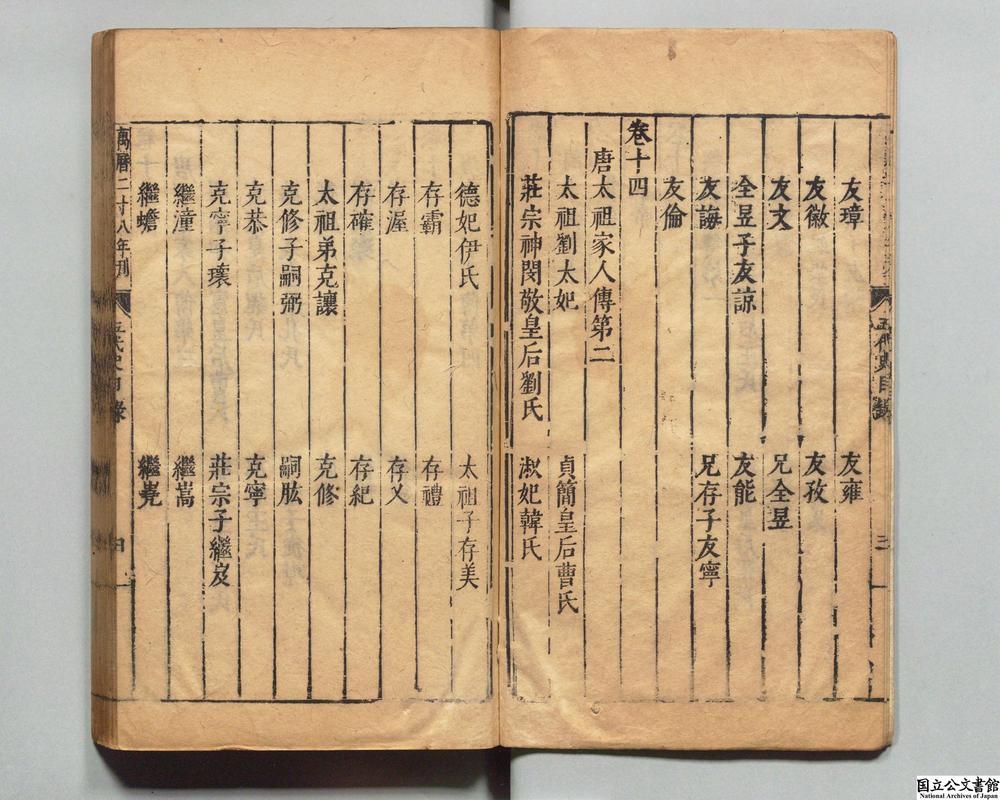 五代史目錄 三
友璋 友雍
友徽 友孜
友文 兄全昱
全昱子友諒 友能
友誨 兄存子友寧
友倫
卷十四
唐太祖家人傳第二
太祖劉太妃 貞簡皇后曹氏
莊宗神閔敬皇后劉氏 淑妃韓氏
德妃伊氏 太祖子存美
存霸 存禮
存渥 存乂
存確 存紀
太祖弟克讓 克修
克修子嗣弼 嗣肱
克恭 克寧
克寧子瓌 莊宗子繼岌
繼潼 繼嵩
繼蟾 繼嶢
萬曆二十八年刊 五代史目錄 四
国立公文書館
National Archives of Japan